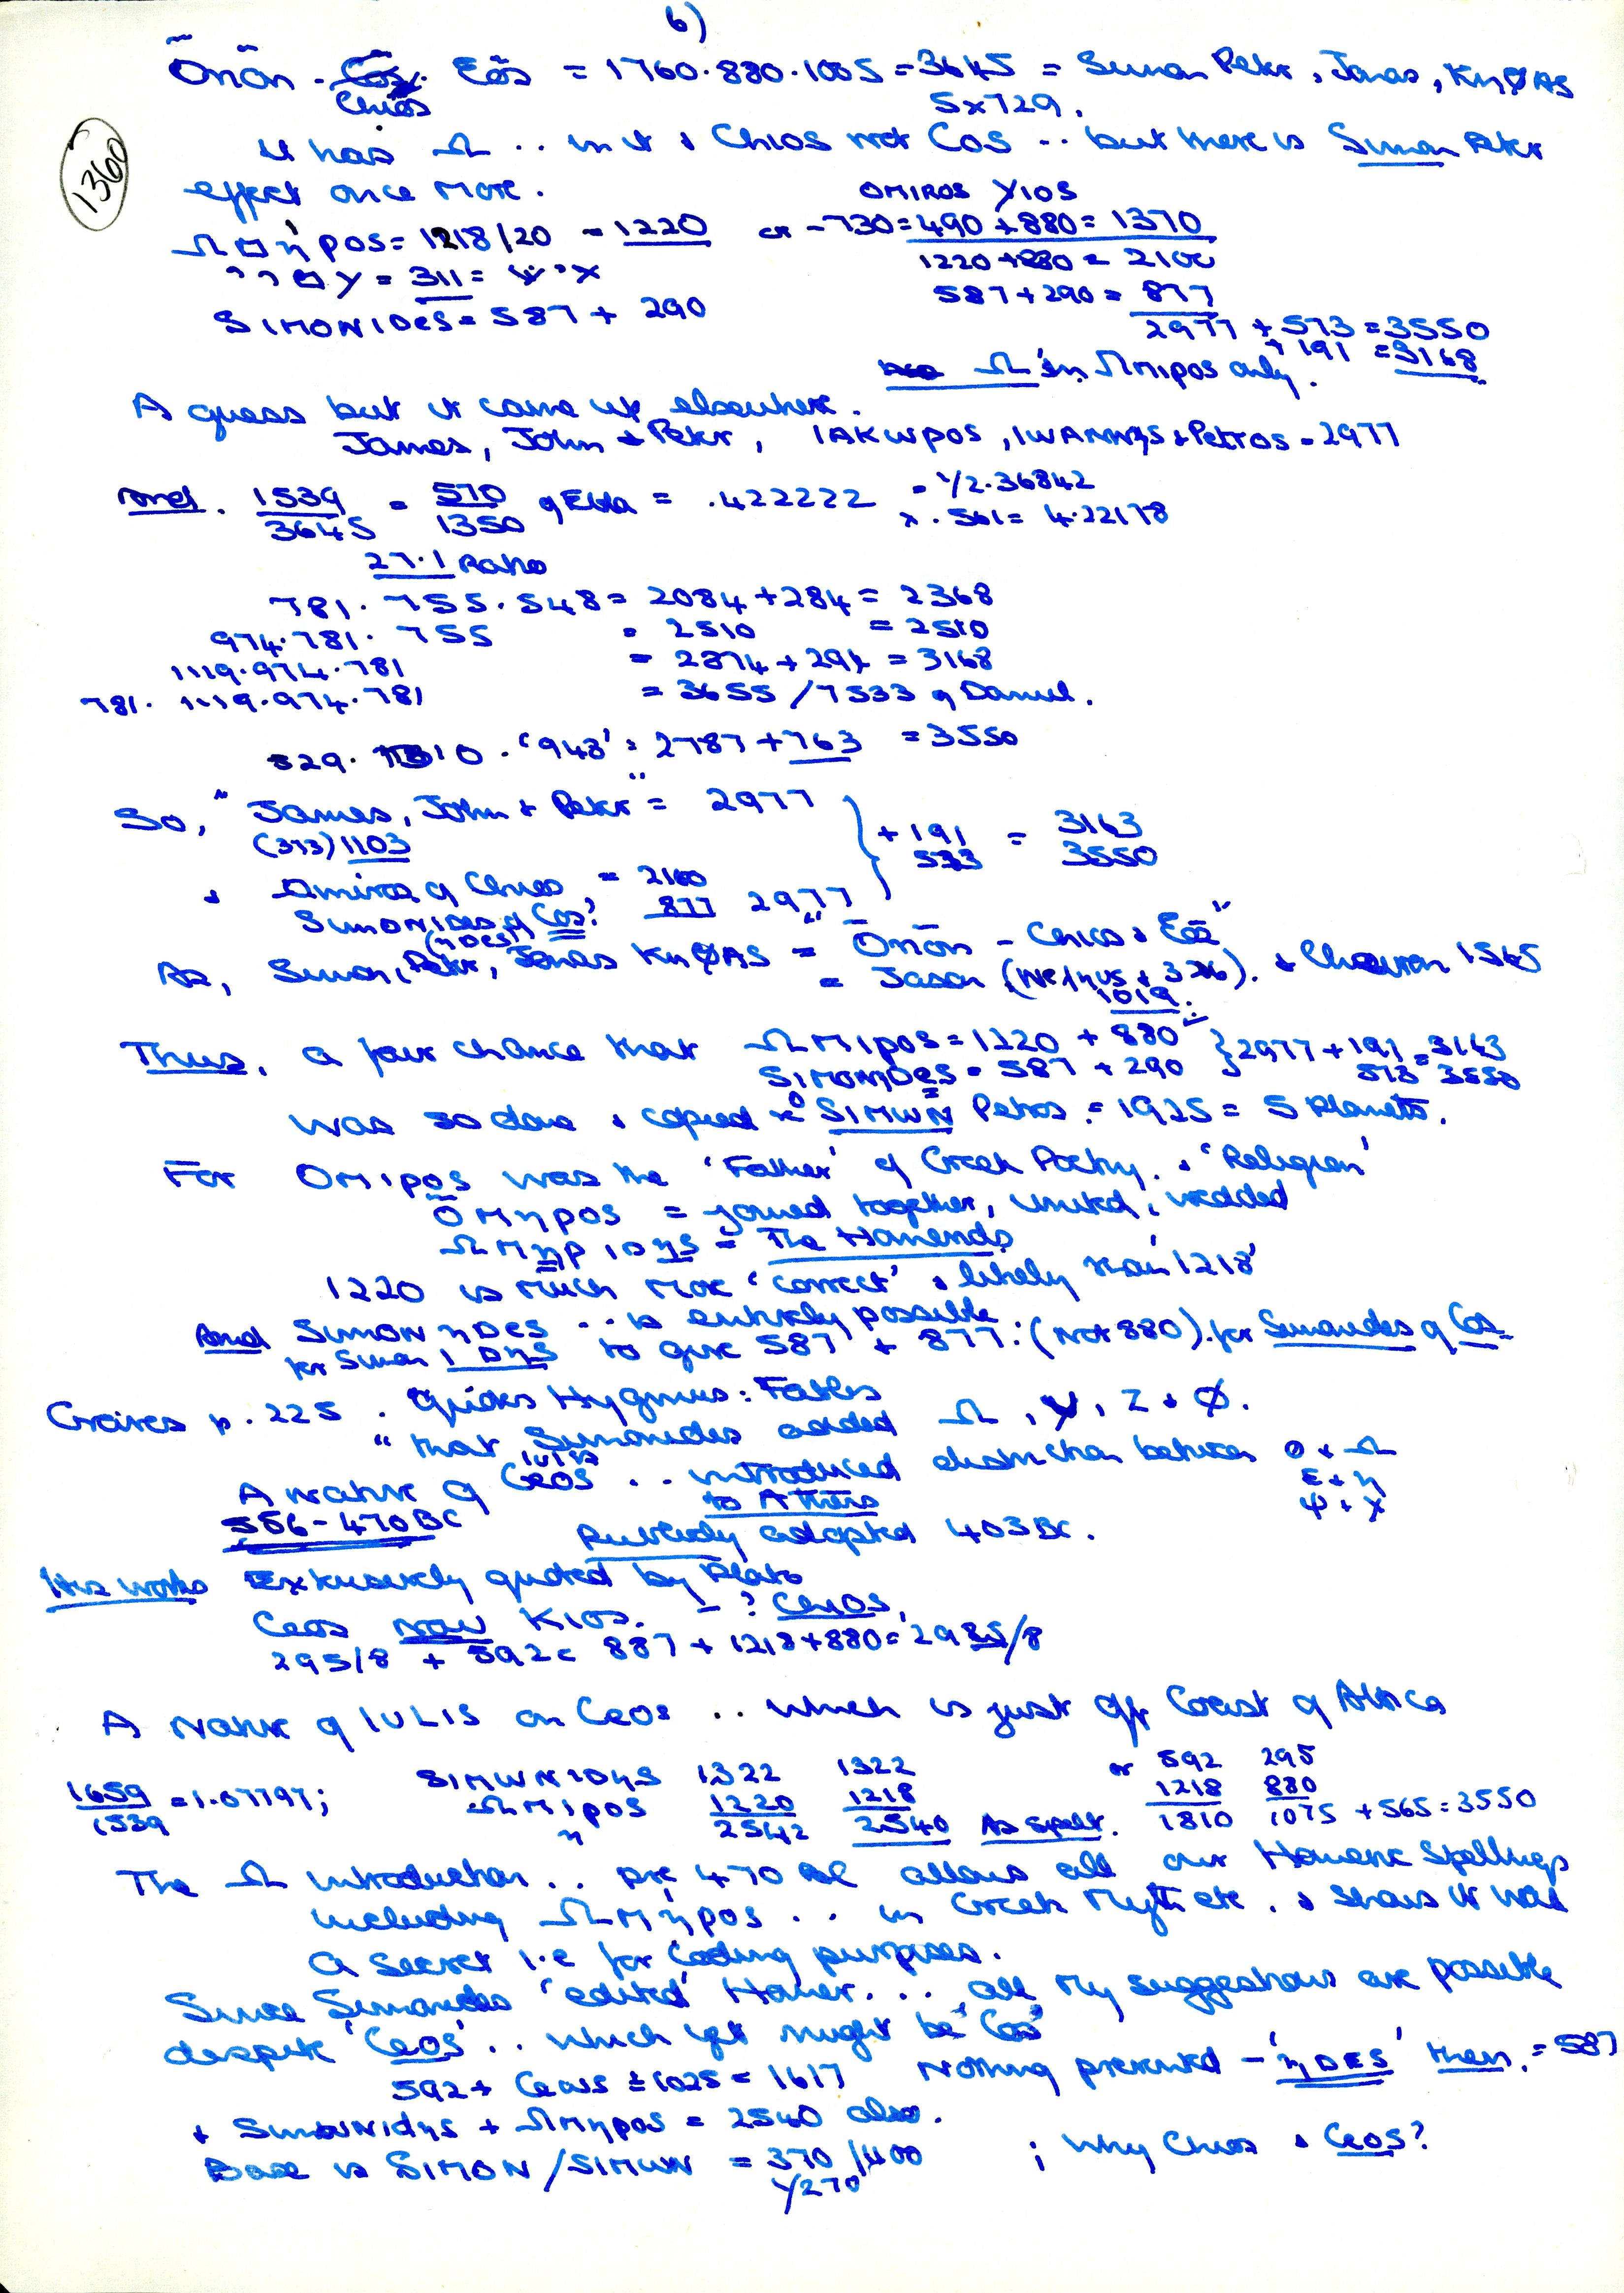 6)
Ōnōn - Chios. Eōs = 1760.880.1005 = 3645 = Simon Peter, Jonas, KηφAS
5x729.
1360
It has Ω .. in it & Chios not Cos .. but there is Simon Peter
effect once more.
OMIROS YIOS
Ω□ήpos = 1218/20 - 1220 or -730 = 490 + 880 = 1370
" " □Y = 311 = Ψ"X 1220 + 880 = 2100
SIMONIDes = 587 + 290 587 + 290 = 877
2977 + 573 = 3550
+ 191 = 3168
Ω'in Ωmipos only.
A guess but it came up elsewhere.
James, John & Peter, IAKWpos, IWANNηS & Petros = 2977
And. 1539/3645 = 570/1350 of Elda = .422222 = 1/2.36842
x .561 = 4.22178
27.1 Ratio
781. 755. 548 = 2084 + 284 = 2368
974. 781. 755 = 2510 = 2510
1119. 974. 781 = 2874 + 294 = 3168
781. 1119. 974. 781 = 3655 / 7533 of Daniel.
829. 1010. '948' = 2787 + 763 = 3550
So, "James, John & Peter" = 2977
(373) 1103
+ 191 = 3163
573 3550
& Omiros of Chios = 2100
Simonides of Cos? 877 2977
(ηDes)
As, Simon, Peter, Jonas KηφAS = "Ōnōn - Chios & Eōs"
= Jason (Welnus + 326). & Cheiron 1565
1019.
Thus, a fair chance that ΩMIpos = 1220 + 880 } 2977 + 191 = 3163
SIMONηDES = 587 + 290 573 3550
was so done & copied SIMWN Petros = 1925 = 5 Planets.
For OMIpos was the 'Father' of Greek Poetry. & 'Religion'
ŌMηpos = joined together, united, wedded
ΩMηpIDηS = The Homerids
1220 is much more 'correct' & likely than '1218'
And SIMONηDES .. is entirely possible
for Simon I DηS to give 587 + 877: (Not 880). for Simonides of Cos.
Graves p. 225. Quotes Hyginus: Fables
"that Simonides added Ω, Ψ, Z & φ.
IULIS
A native of Ceos .. introduced distinction between O & Ω
to Athens E & η
556 - 470 BC Ψ & X
Publicly adopted 403 BC.
His works Extensively quoted by Plato
Ceos now Kios. ? Chios.
295/8 + 592 = 887 + 1218 + 880 = 2985/8
A native of IULIS on Ceos .. which is just off Coast of Attica
1659/1539 = 1.07797; SIMWNIDηS 1322 1322 or 592 295
ΩMIpos 1220 1218 1218 880
η 2542 2540 As spelt. 1810 1075 + 565 = 3550
The Ω introduction .. pre 470 BC allows all our Homeric Spellings
including ΩMήpos .. in Greek Myth etc. & shows it was
a secret i.e for Coding purposes.
Since Simonides 'edited' Homer ... all my suggestions are possible
despite 'Ceos' .. which yet might be 'Cos'
592 + Cews ± 1025 = 1617 Nothing prevented - 'ηDES' then. = 587
& Simwnidηs + ΩMηpos = 2540 also.
Base is SIMON/SIMWN = 370 / 1100 ; Why Chios & Ceos?
Y/270